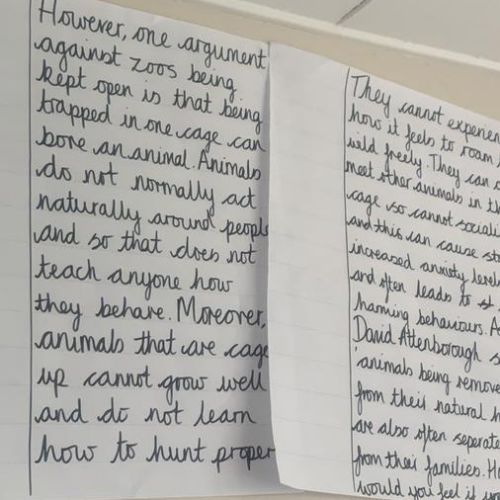 However, one argument
against zoos being
kept open is that being
trapped in one cage can
bore an animal. Animals
do not normally act
naturally around people
and so that does not
teach anyone how
they behave. Moreover,
animals that are cage
up cannot grow well
and do not learn
how to hunt proper
They cannot experien
how it feels to roam
wild freely. They can
meet other animals in th
cage so cannot sociali
and this can cause st
increased anxiety level
and often leads to
harming behaviours. A
David Attenborough s
'animals being remove
from their natural h
are also often separate
from their families. H
would you feel if